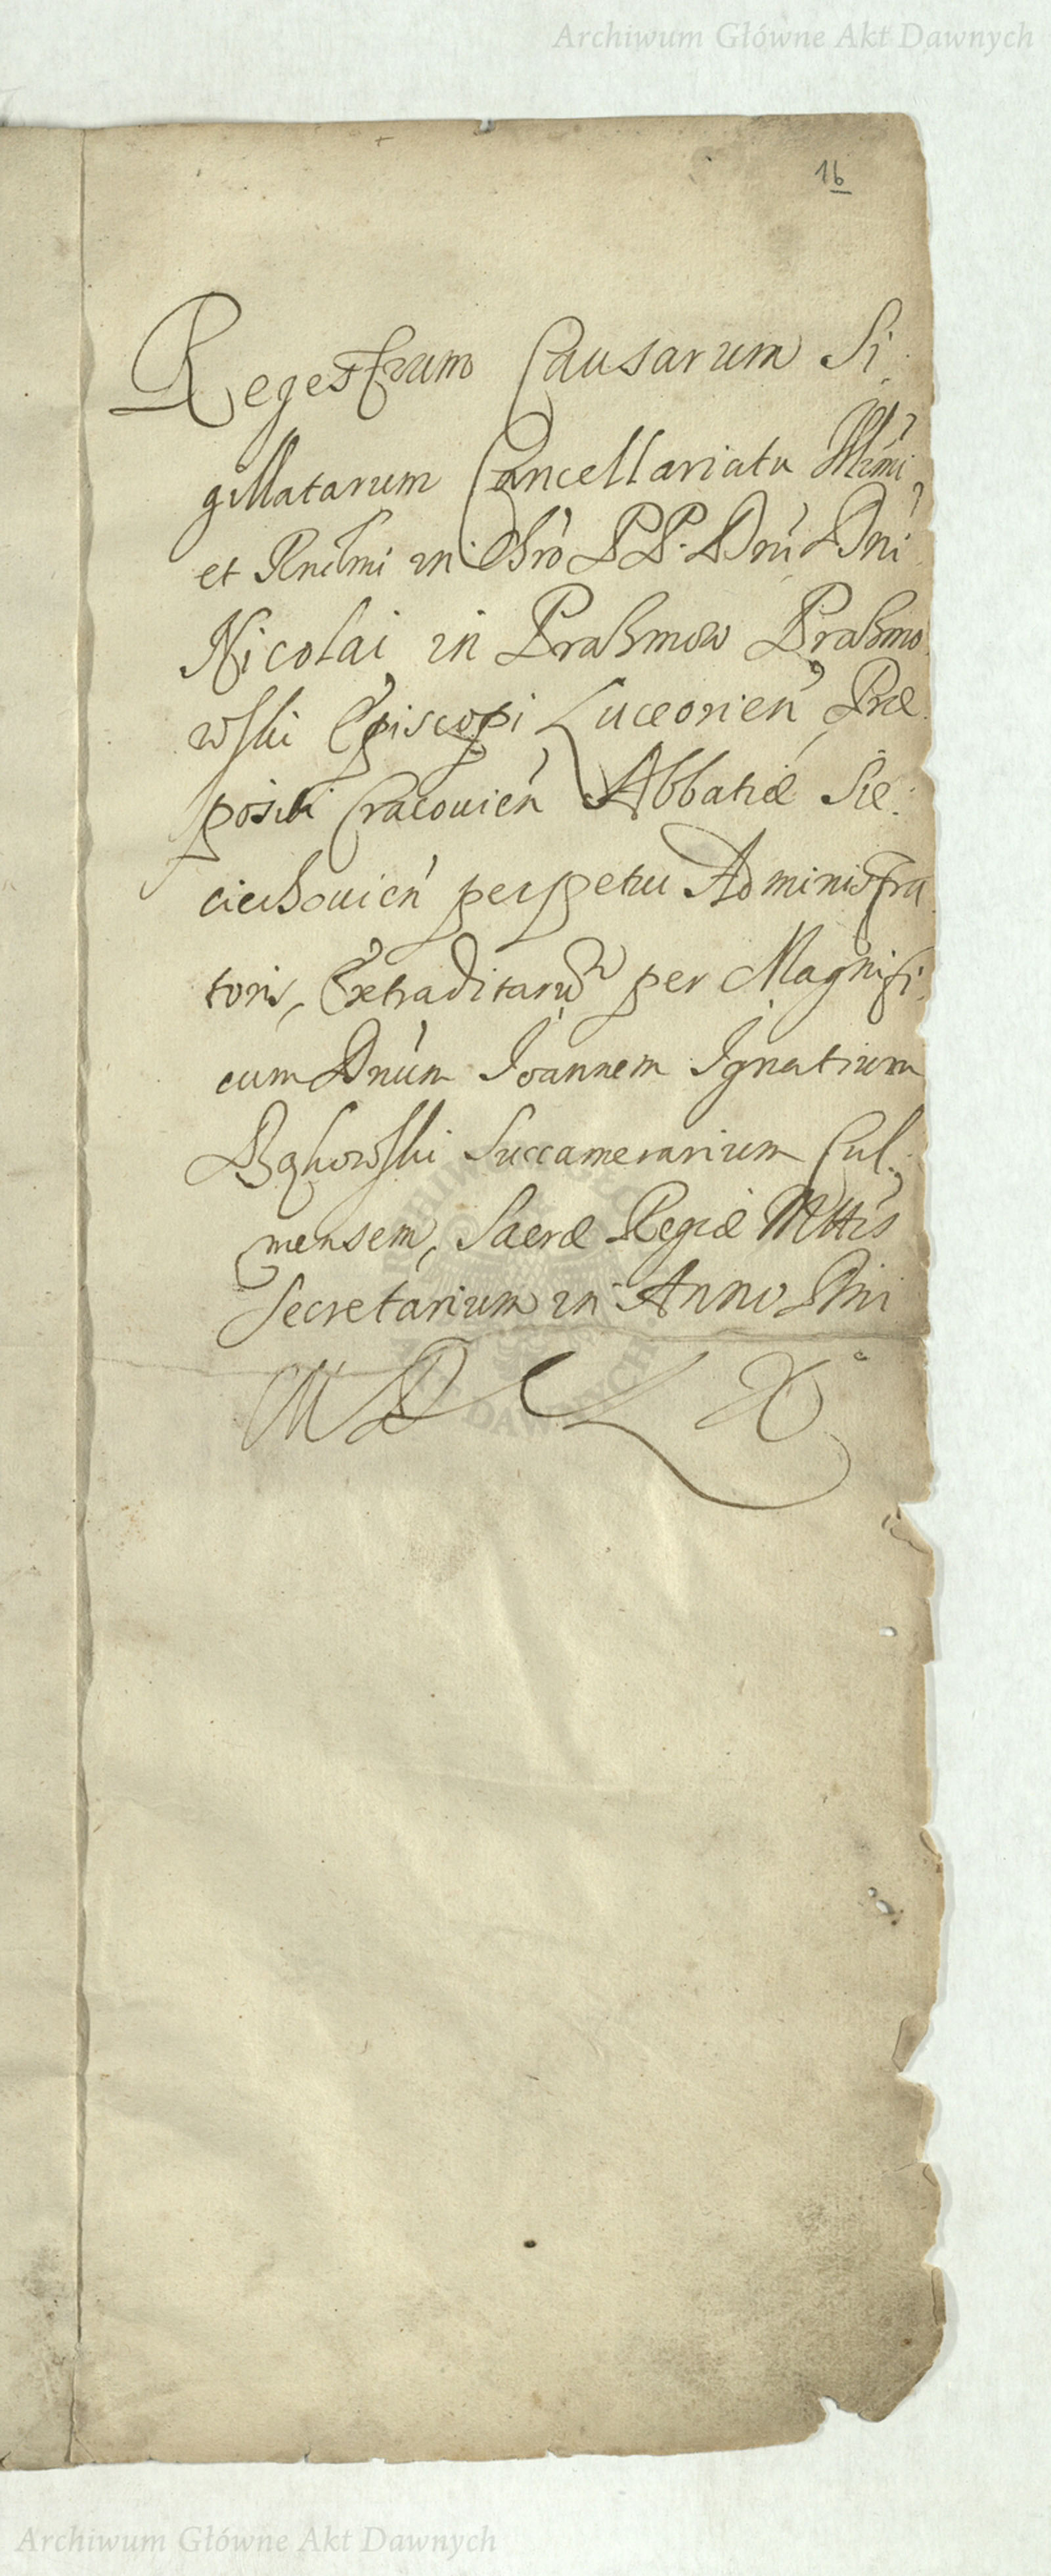 Archiwum Główne Akt Dawnych
16
Regestrum Causarum Si
gillatarum Cancellariatu Illr̃mi
et Rndmi in Chrō P P. Dnī Dnī
Nicolai in Prażmow Prażmo
wski Episcopi Luceorien̄ Præ
positi Cracouien̄ Abbatiæ Sie:
ciechouien̄ perpetui Administra
toris, Extraditarũ per Magnifi
cum Dnūm Ioannem Ignatium
Bąkowski Succamerarium Cul
mensem, Sacræ Regiæ Mttis
Secretarium in Anno Dni
M D C L X°
Archiwum Główne Akt Dawnych